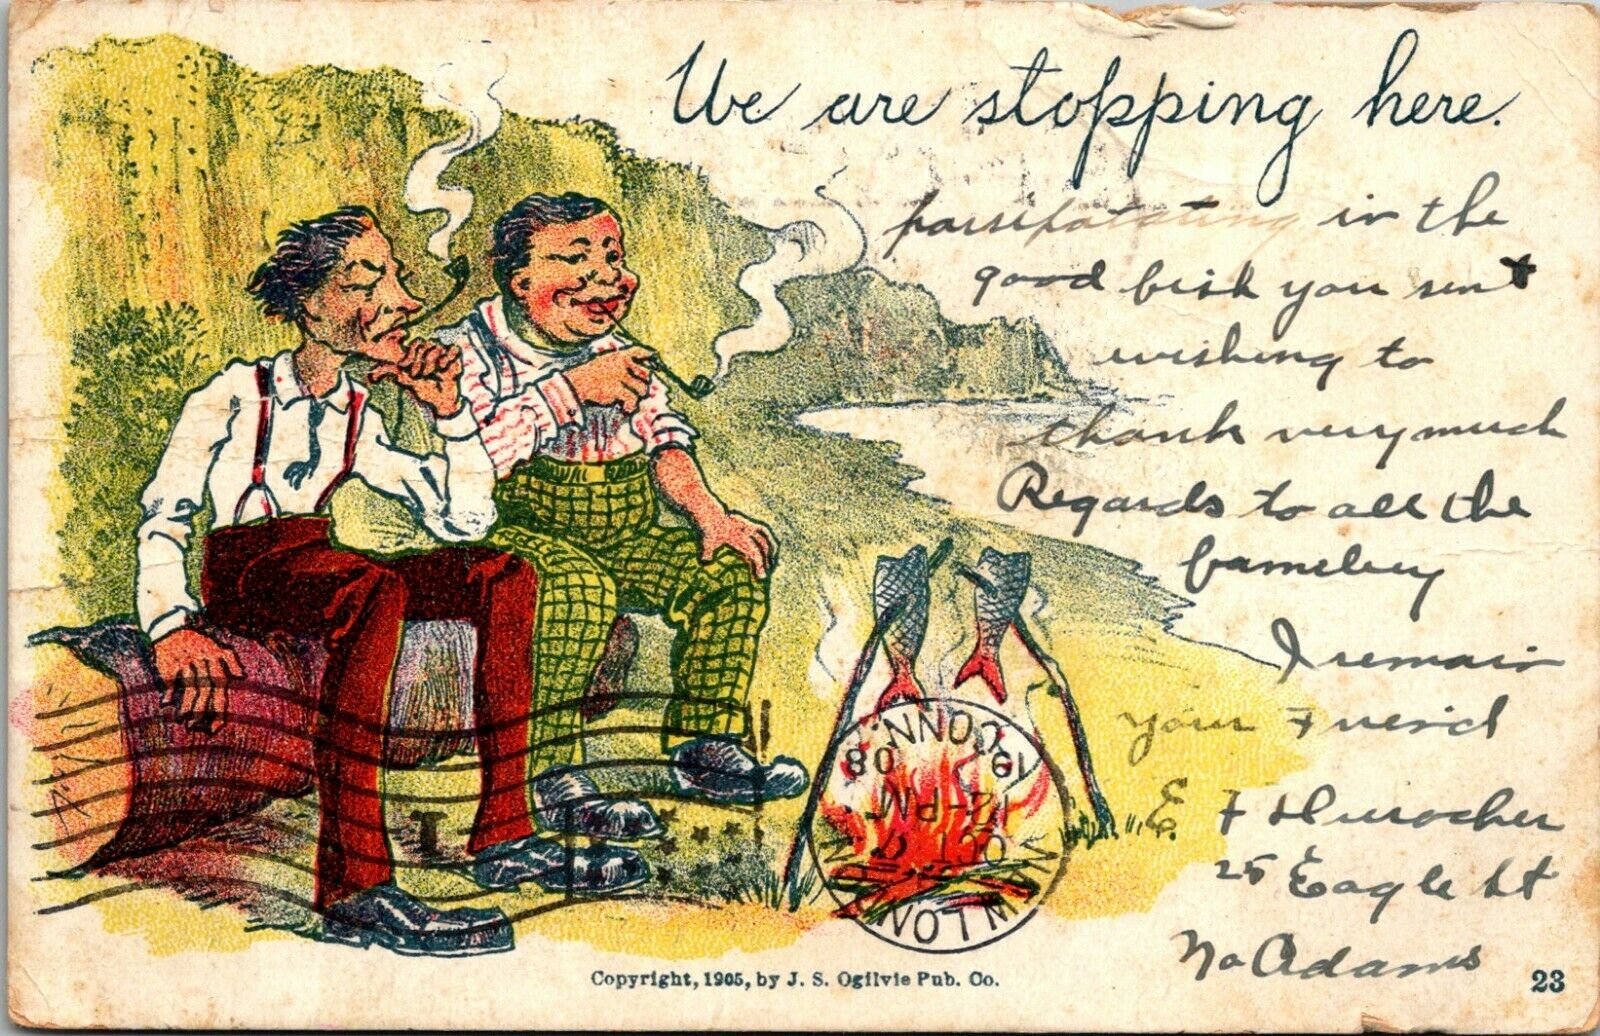 We are stopping here.
parsipatating in the
good fish you sent
wishing to
thank very much
Regards to all the
fameley
I remain
your Friend
E F
25 Eagle St
No Adams
NEW LONDON
OCT
12-PM
1908
CONN.
1
Copyright, 1905, by J. S. Ogilvie Pub. Co.
23